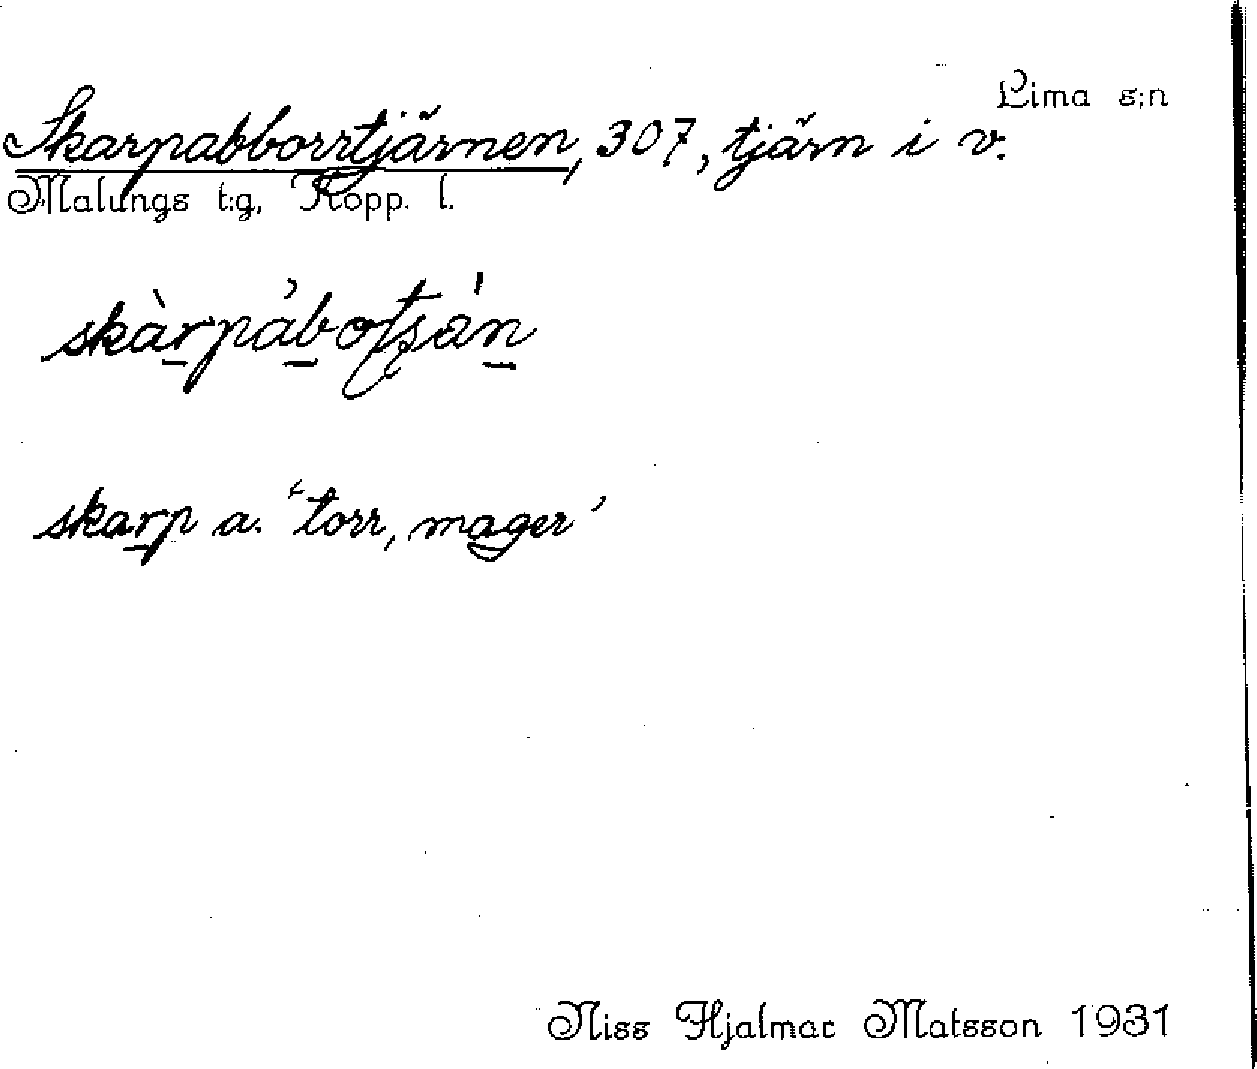 Lima s:n
Skarpabborrtjärnen, 307, tjärn i v.
Malungs t:g, Kopp. l.
skarp a. 'torr, mager'
Niss Hjalmar Matsson 1931